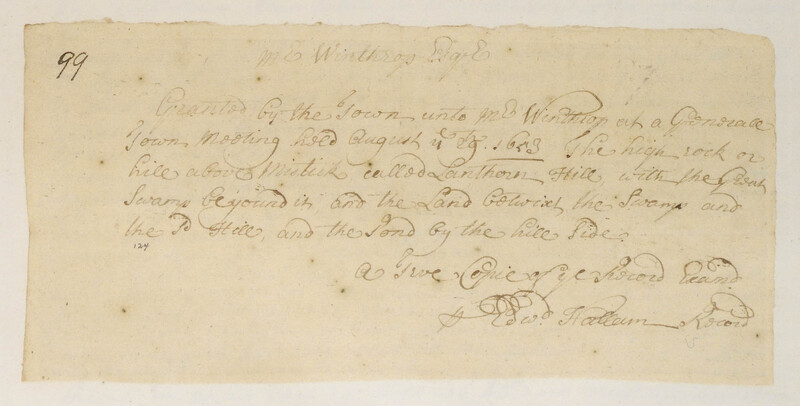 99
Mr Winthrop Esqr
Granted by the Town unto Mr Winthrop at a Generall
Town Meeting held August ye 29. 1653 The high rock or
hill above Mistick called Lanthorn Hill, with the great
Swamp beyound it, and the Land betwixt the Swamp and
the sd Hill, and the Pond by the hill Side.
124
A True Copie of ye Record Examd
Edwd Hallam Recordr